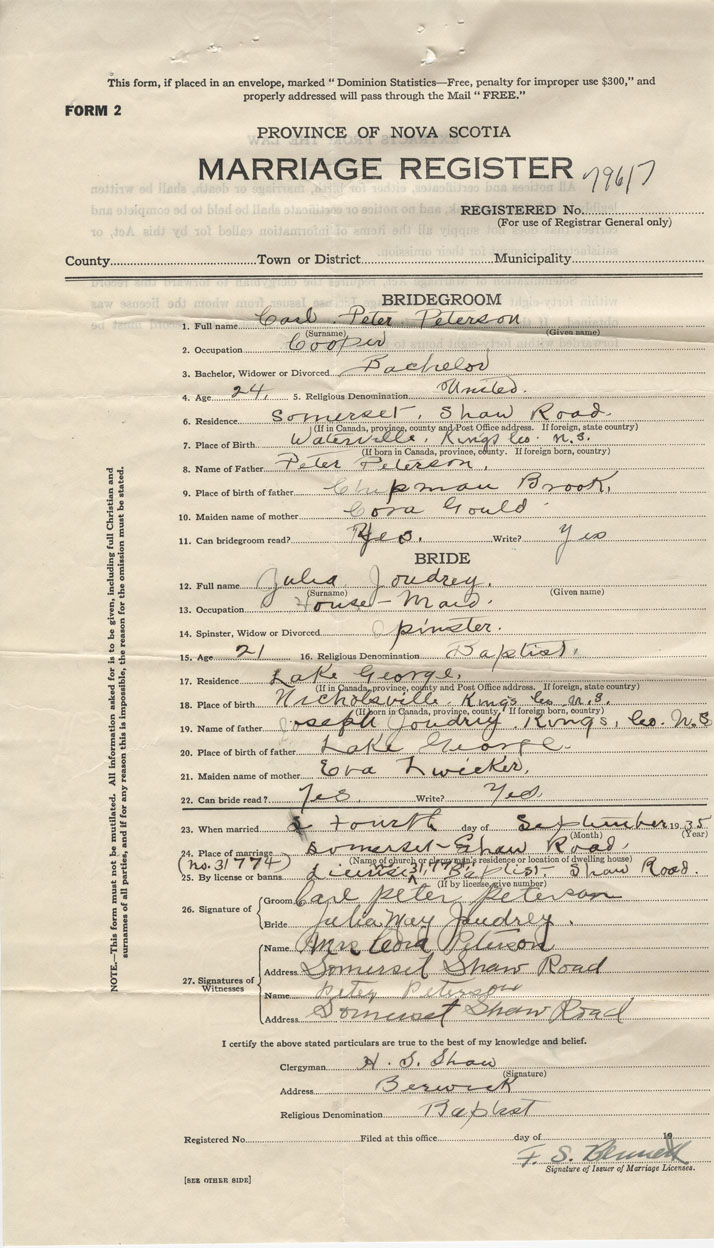 This form, if placed in an envelope, marked "Dominion Statistics—Free, penalty for improper use $300," and
properly addressed will pass through the Mail "FREE."
FORM 2
PROVINCE OF NOVA SCOTIA
MARRIAGE REGISTER 79617
REGISTERED No.
(For use of Registrar General only)
County Town or District Municipality
BRIDEGROOM
1. Full name Carl Peter Peterson
(Surname) (Given name)
2. Occupation Cooper
3. Bachelor, Widower or Divorced Bachelor
4. Age 24, 5. Religious Denomination United.
6. Residence Somerset, Shaw Road.
(If in Canada, province, county and Post Office address. If foreign, state country)
7. Place of Birth Waterville, Kings Co. N.S.
(If born in Canada, province, county. If foreign born, country)
8. Name of Father Peter Peterson,
9. Place of birth of father Chipman Brook,
10. Maiden name of mother Cora Gould
11. Can bridegroom read? Yes. Write? Yes
BRIDE
12. Full name Julia Joudrey.
(Surname) (Given name)
13. Occupation House-Maid.
14. Spinster, Widow or Divorced Spinster.
15. Age 21 16. Religious Denomination Baptist.
17. Residence Lake George,
(If in Canada, province, county and Post Office address. If foreign, state country)
18. Place of birth Nicholsville, Kings Co. N.S.
(If born in Canada, province, county. If foreign born, country)
19. Name of father Joseph Joudrey, Kings, Co. N.S
20. Place of birth of father Lake George.
21. Maiden name of mother Eva Zwicker,
22. Can bride read? Yes. Write? Yes
23. When married Fourth day of September 1935
(Month) (Year)
24. Place of marriage Somerset-Shaw Road,
(Name of church or clergyman's residence or location of dwelling house)
(No. 31774)
25. By license or banns License 31,774, Baptist- Shaw Road.
(If by license, give number)
26. Signature of Groom Carl Peter Peterson
Bride Julia May Joudrey.
27. Signatures of Witnesses
Name Mrs Cora Peterson
Address Somerset Shaw Road
Name Peter Peterson
Address Somerset Shaw Road
I certify the above stated particulars are true to the best of my knowledge and belief.
Clergyman H. S. Shaw
(Signature)
Address Berwick
Religious Denomination Baptist
Registered No. Filed at this office day of 19
F. S. Bennett
Signature of Issuer of Marriage Licenses.
[SEE OTHER SIDE]
NOTE.—This form must not be mutilated. All information asked for is to be given, including full Christian and
surnames of all parties, and if for any reason this is impossible, the reason for the omission must be stated.